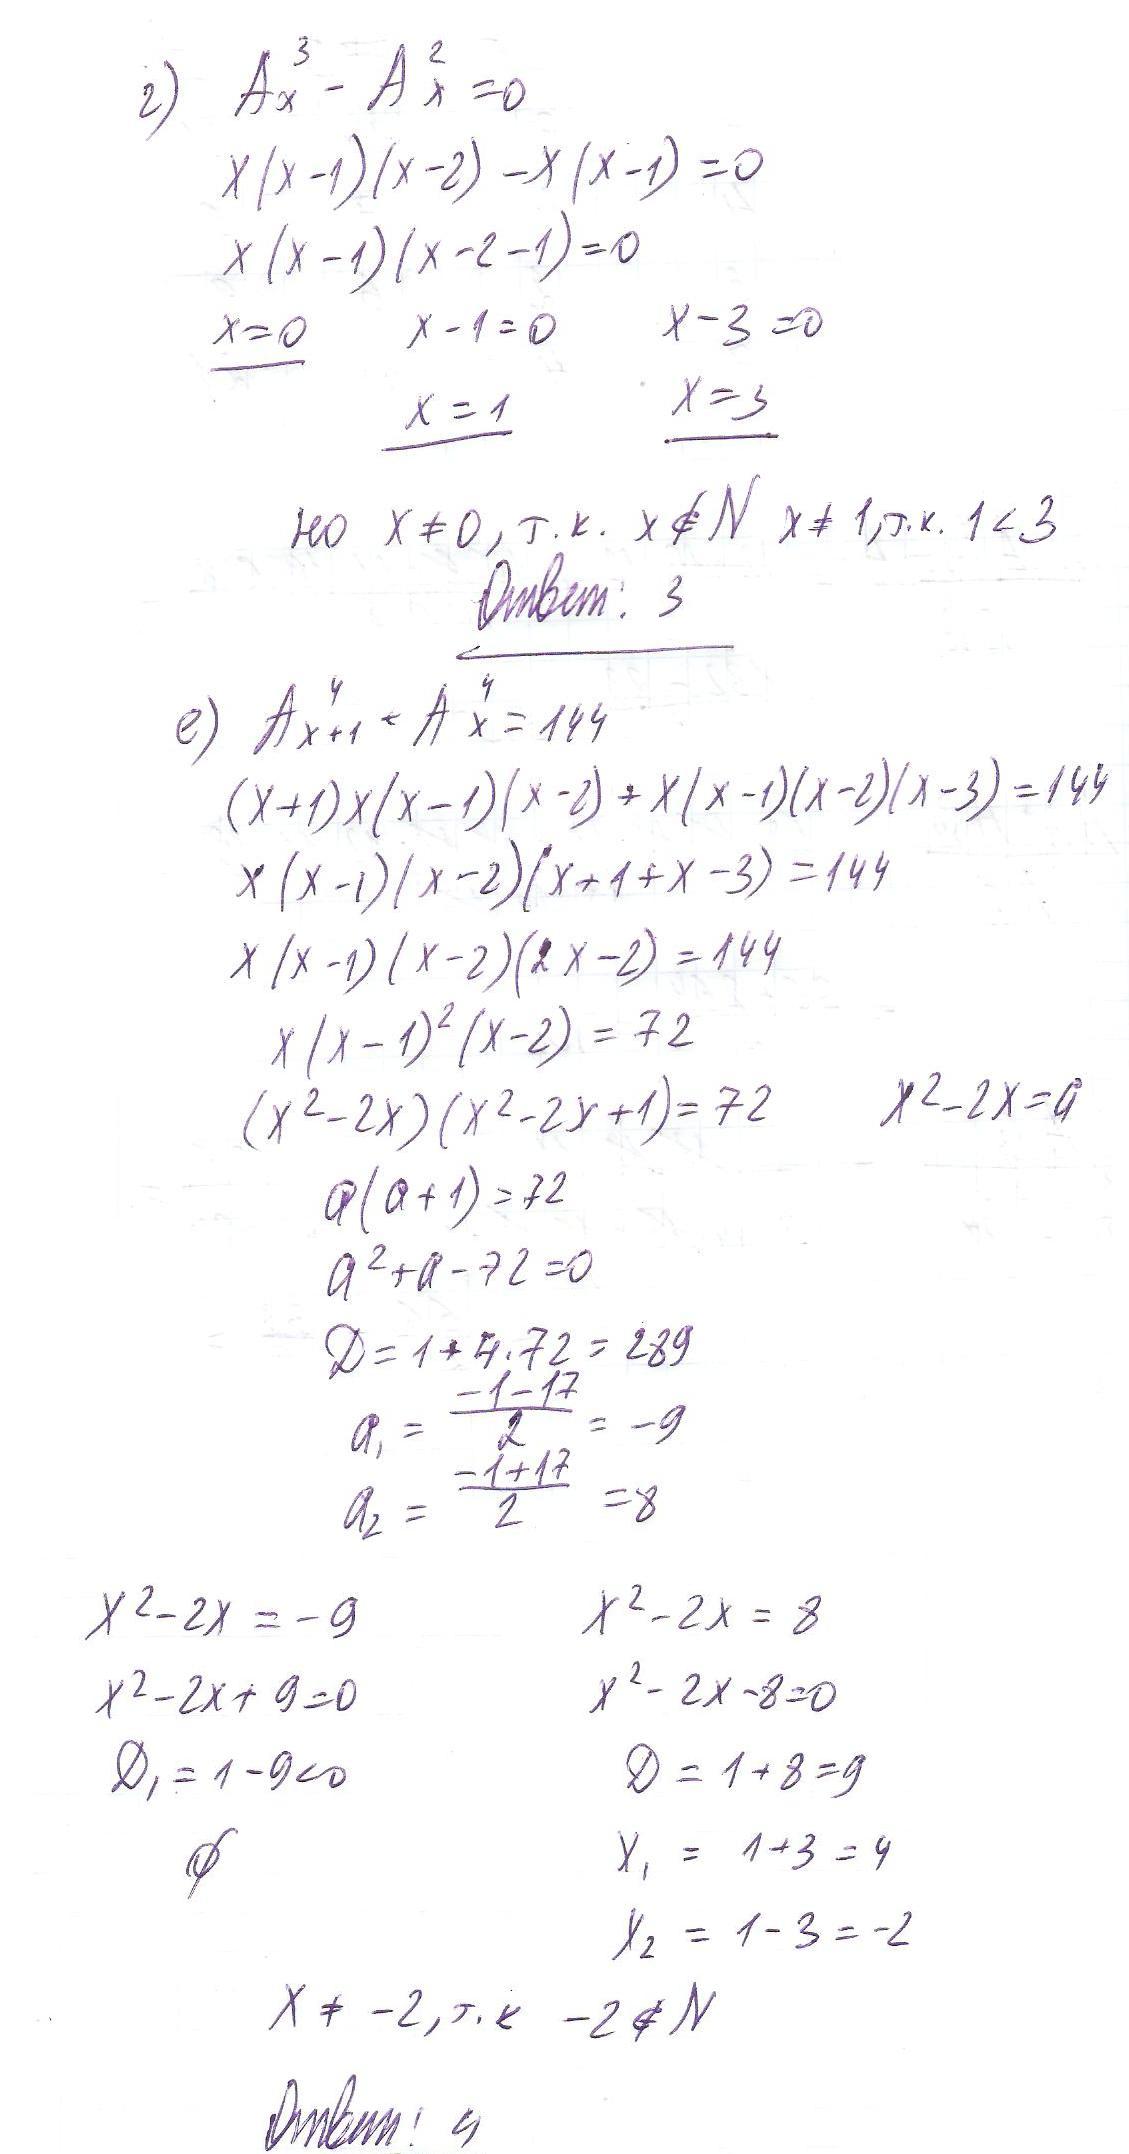 г) Aₓ³ - Aₓ² = 0
x(x-1)(x-2) - x(x-1) = 0
x(x-1)(x-2-1) = 0
x=0 x-1=0 x-3=0
x=1 x=3
но x≠0, т.к. x∉N x≠1, т.к. 1<3
Ответ: 3
е) Aₓ₊₁⁴ + Aₓ⁴ = 144
(x+1)x(x-1)(x-2) + x(x-1)(x-2)(x-3) = 144
x(x-1)(x-2)(x+1+x-3) = 144
x(x-1)(x-2)(2x-2) = 144
x(x-1)²(x-2) = 72
(x²-2x)(x²-2x+1) = 72 x²-2x=a
a(a+1) = 72
a²+a-72=0
D=1+4·72=289
a₁ = (-1-17)/2 = -9
a₂ = (-1+17)/2 = 8
x²-2x = -9 x²-2x = 8
x²-2x+9=0 x²-2x-8=0
D₁ = 1-9<0 D = 1+8=9
∅ x₁ = 1+3=4
x₂ = 1-3=-2
x ≠ -2, т.к -2∉N
Ответ: 4